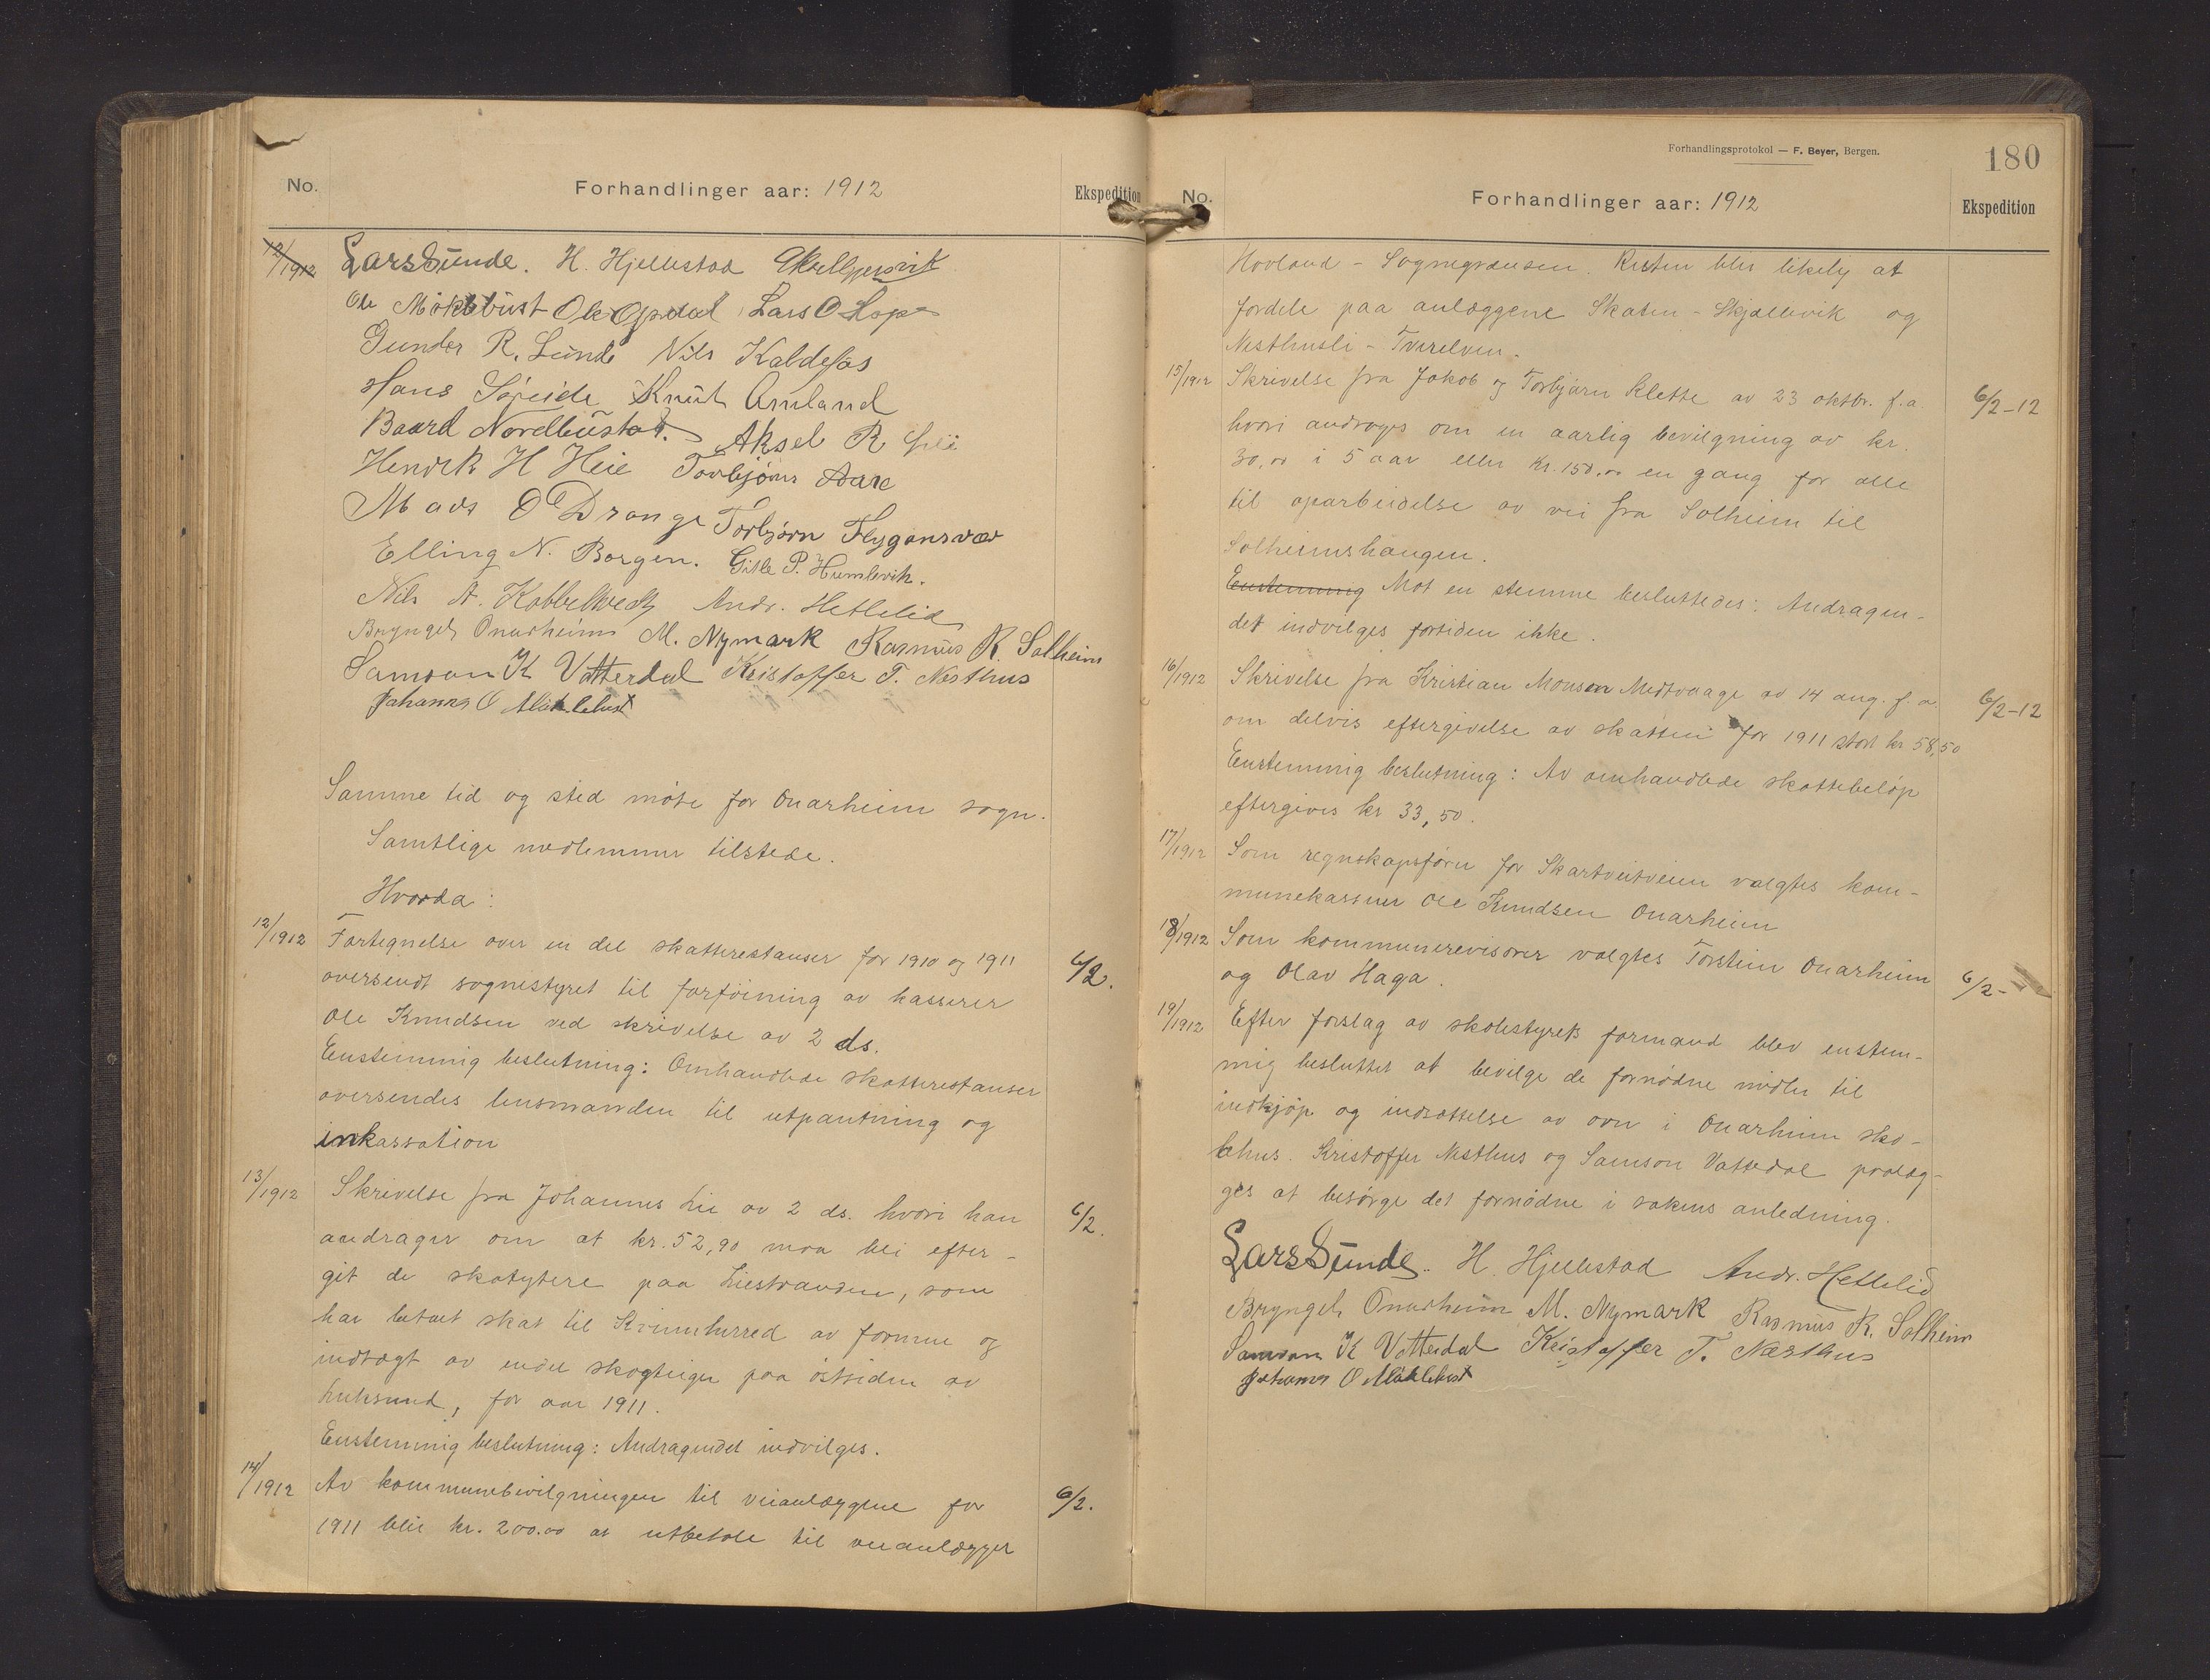 No.
Forhandlinger aar: 1912
Ekspedition
12/1912
Lars Sunde. H. Hjellestad
Ole Møklebust Ole Opdal Lars O Hope
Gunder R. Lunde Nils Kaldefos
Hans Søreide Knut Amland
Baard Nordbustad. Aksel R
Henrik H Heie Torbjørn Aare
Mads O Drange Torbjørn Flygansvær
Elling N. Borgen. Gitle P. Humlevik.
Nils A. Kobbeltvedt Andr. Hetlelid
Bryngel Onarheim M. Nymark Rasmus R. Solheim
Samson K Vattedal Kristoffer T. Nesthus
Johannes O Møklebust
Samme tid og sted møte for Onarheim sogn.
Samtlige medlemmer tilstede.
Hvorda:
12/1912
Fortegnelse over en del skatterestanser for 1910 og 1911
6/2.
oversendt sognestyret til forføining av kasserer
Ole Knudsen ved skrivelse av 2 ds.
Enstemmig beslutning: Omhandlede skatterestanser
oversendes lensmanden til utpantning og
inkassation
13/1912
Skrivelse fra Johannes Lie av 2 ds. hvori han
6/2.
andrager om at kr. 52,90 maa bli efter-
git de skatytere paa Liestranden, som
har betalt skat til Kvinnherred av formue og
indtægt av endel skogteiger paa østsiden av
Luksund, for aar 1911.
Enstemmig beslutning: Andragendet indvilges.
14/1912
Av kommunebevilgningen til veianlæggene for
6/2.
1911 blir kr. 200.00 at utbetale til veianlægget
Forhandlingsprotokol — F. Beyer, Bergen.
180
No.
Forhandlinger aar: 1912
Ekspedition
Hovland - Sognegrænsen. Resten blir likelig at
fordele paa anlæggene Skaten - Skjællevik og
Nesthusli - Tverelven.
15/1912
Skrivelse fra Jakob og Torbjørn Klette av 23 oktbr. f.a.
6/2-12
hvori androges om en aarlig bevilgning av kr.
30,00 i 5 aar eller kr. 150.00 en gang for alle
til oparbeidelse av vei fra Solheim til
Solheimshaugen.
Enstemmig Mot en stemme besluttedes: Andragen-
det indvilges fortiden ikke.
16/1912
Skrivelse fra Kristian Monsen Medvaage av 14 aug. f.a.
6/2-12
om delvis eftergivelse av skatten for 1911 stort kr 58,50
Enstemmig beslutning: Av omhandlede skattebeløp
eftergives kr 33,50.
17/1912
Som regnskapsfører for Skartveitveien valgtes kom-
munekasserer Ole Knudsen Onarheim
18/1912
Som kommunerevisorer valgtes Torstein Onarheim
og Olav Haga.
6/2-
19/1912
Efter forslag av skolestyrets formand blev enstem-
mig besluttet at bevilge de fornødne midler til
indkjøp og indsættelse av ovn i Onarheim sko-
lehus. Kristoffer Nesthus og Samson Vattedal paalæg-
ges at besørge det fornødne i sakens anledning.
Lars Sunde. H. Hjellestad Andr. Hetlelid
Bryngel Onarheim M. Nymark Rasmus R. Solheim
Samson K Vattedal Kristoffer T. Nesthus
Johannes O Møklebust